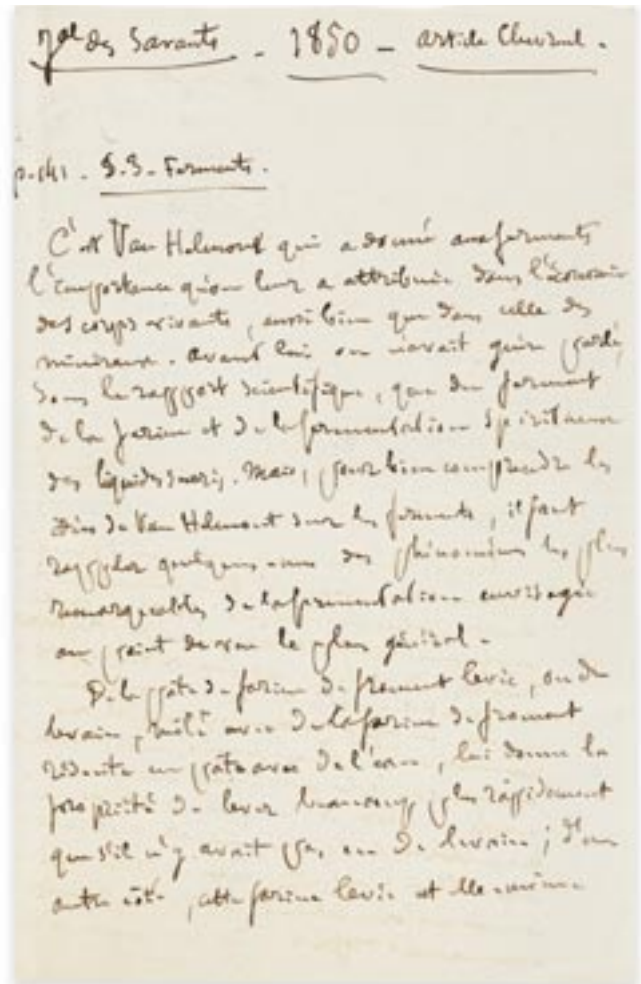 Jal des Savants - 1850 - article Chevreul.
p. 141 - §.3 - Ferments.
C'est Van Helmont qui a donné aux ferments
l'importance qu'on leur a attribuée dans l'économie
des corps vivants, aussi bien que dans celle des
minéraux. Avant lui on n'avait guère parlé,
sous le rapport scientifique, que du ferment
de la farine et de la fermentation spiritueuse
des liquides sucrés. Mais, pour bien comprendre les
idées de Van Helmont sur les ferments, il faut
rappeler quelques-uns des phénomènes les plus
remarquables de la fermentation envisagée
au point de vue le plus général.
De la pâte de farine de froment levée, ou du
levain, mêlé avec de la farine de froment
réduite en pâte avec de l'eau, lui donne la
propriété de lever beaucoup plus rapidement
que s'il n'y avait pas eu de levain ; d'un
autre côté, cette farine levée est elle-même